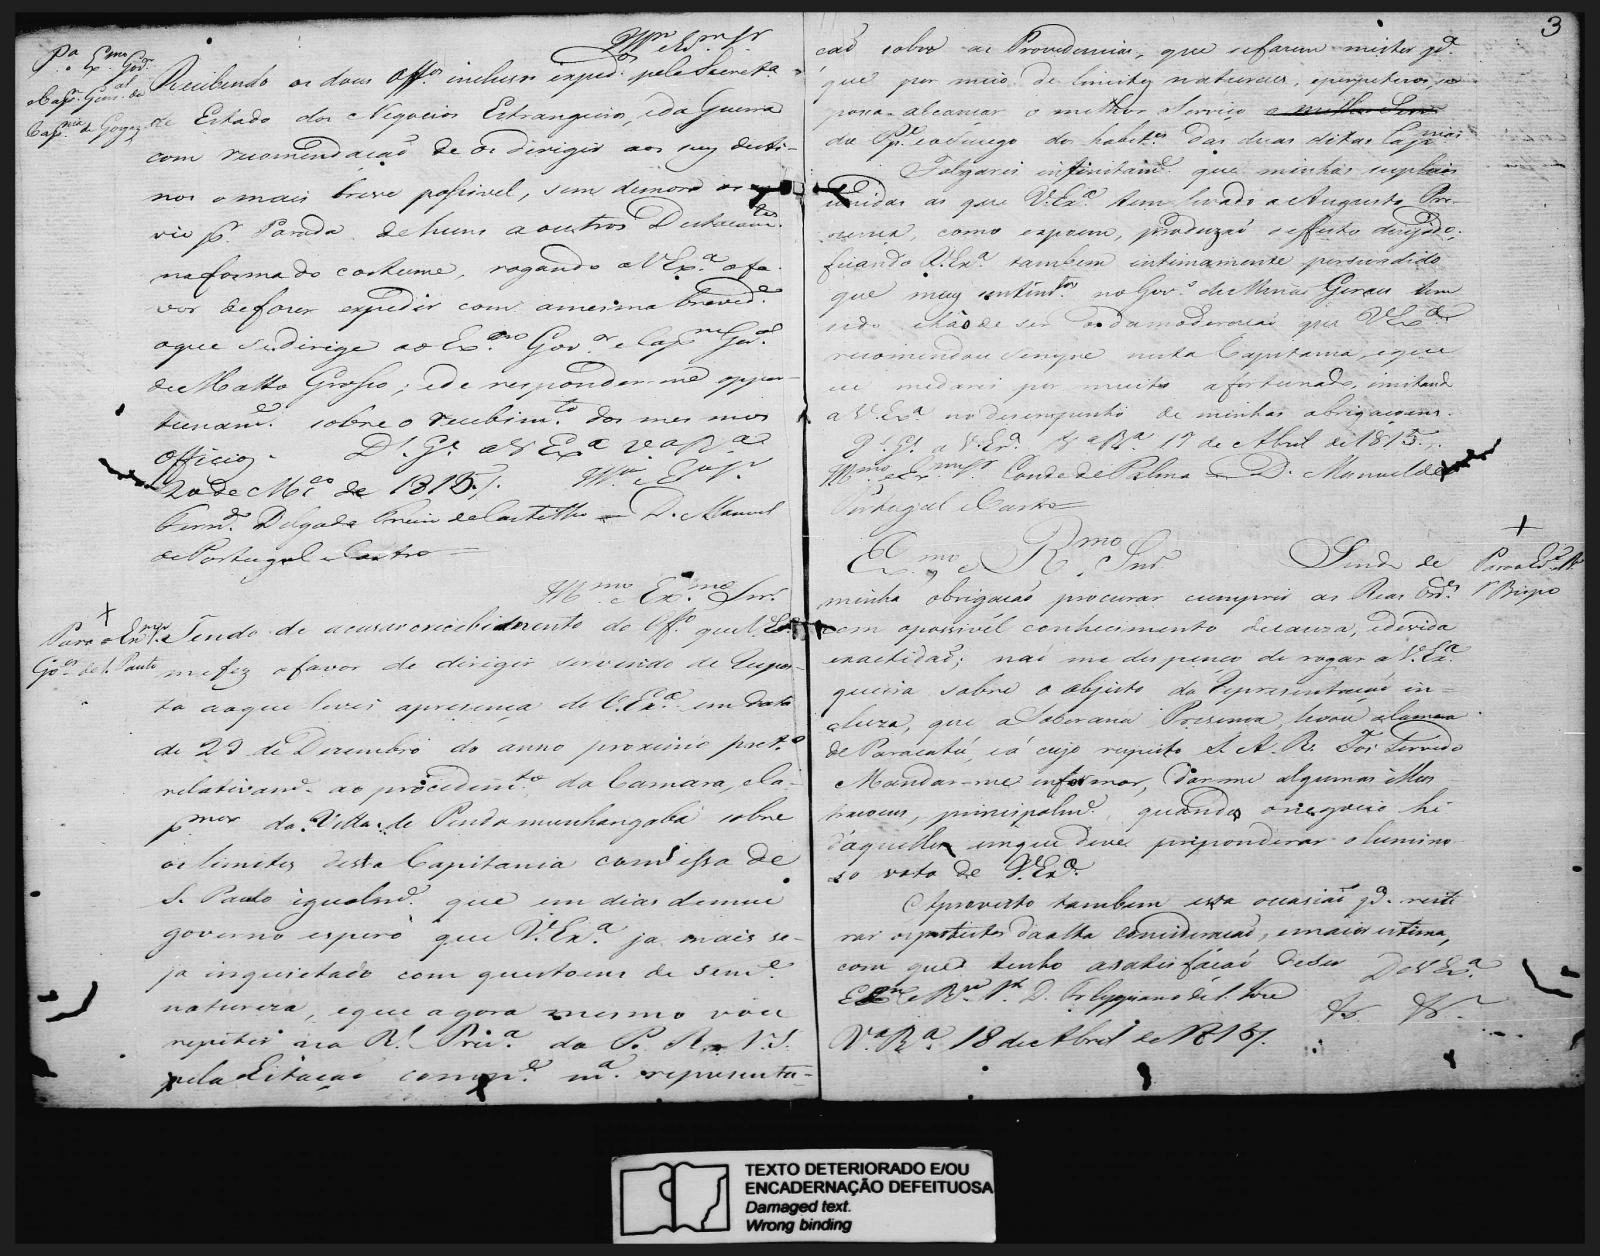 Pa. o Exmo. Govor.
e Capm. Genal. de
Capnia. de Goyaz
Illmo. e Exmo. Sr.
Recebendo os dous Offos. inclusos exped. pela Secreta.
de Estado dos Negocios Estrangeiros, e da Guerra
com recomendação de os dirigir aos seus desti-
nos o mais breve possivel, sem demora os
vie pr. Parada de huns a outros Destacamtos.
na forma do costume, rogando a V. Exa. o fa-
vor de fazer expedir com a mesma brevide.
o que se dirige ao Exmo. Govor. e Capm. Genal.
de Matto Grosso; e de responder-me oppor-
tuname. sobre o recebimto. dos mesmos
officios. Ds. Ge. a V. Exa. Va. Ra.
20 de Mço. de 1815. Illmo. e Exmo. Sr.
Ferndo. Delgado Freire de Castilho = D. Manoel
de Portugal e Castro =
Illmo. e Exmo. Snr.
Para o Exmos.
Gores. de S. Paulo
Tendo de acusar o recebimento do Offo. que V. Exa.
me fez o favor de dirigir servindo de respos-
ta ao que levei a presença de V. Exa. em data
de 23 de Dezembro do anno proximo preto.
relativame. ao procedimto. da Camara, e Ca-
pmor da Villa de Pindamunhangaba sobre
os limites desta Capitania com essa de
S. Paulo igualme. que em dias de meu
governo espero que V. Exa. ja mais se-
ja inquietado com questoens de seme.
natureza, e que agora mesmo vou
repetir na Rl. Preza. do P. R. N. S.
pela Estação compe. ma. representa-
3
cão sobre as Providencias, que se fazem mister pa.
que por meio de limites naturaes, e perpetuos, se
possa alcançar o melhor Serviço
do Pe. e o socego dos habites. das duas ditas Capnias
Folgarei infinitame. que minhas suplicas
unidas as que V. Exa. tem levado a Augusta Pre-
zença, como expoem, produzão o effeito dezejado;
ficando V. Exa. tambem intimamente persuadido
que meus sentimtos. no Govo. de Minas Geraes tem
sido e hão de ser os da moderação que V. Exa.
recomendou sempre nesta Capitania, e que
eu me darei por muito afortunado, imitando
a V. Exa. no desempenho de minhas obrigacoens.
Ds. Ge. a V. Exa. Va. Ra. 17 de Abril de 1815.
Illmo. e Exmo. Sr. Conde de Palma = D. Manoel de
Portugal e Castro =
Exmo. e Rmo. Snr.
Para o Exmo. R.
Bispo
Sendo de
minha obrigação procurar cumprir as Reaes Ordes.
com o possivel conhecimento de cauza, e devida
exactidão; não me dispenço de rogar a V. Exa.
queira sobre o objecto da Representação in-
cluza, que a Soberana Prezença levou a Camara
de Paracatú, e á cujo respeito S. A. R. Foi Servido
Mandar-me informar, dar-me algumas illus-
tracoens, principalme. quando o negocio hé
d'aquelles em que deve preponderar o lumino-
so voto de V. Exa.
Aproveito tambem esta occasião pa. reite-
rar os protestos da alta consideração, e maior estima,
com que tenho a satisfação de ser De V. Exa.
Exmo. e Rmo. Sr. D. Fr. Cypriano de S. Joze
Va. Ra. 18 de Abril de 1815.
TEXTO DETERIORADO E/OU
ENCADERNAÇÃO DEFEITUOSA
Damaged text.
Wrong binding